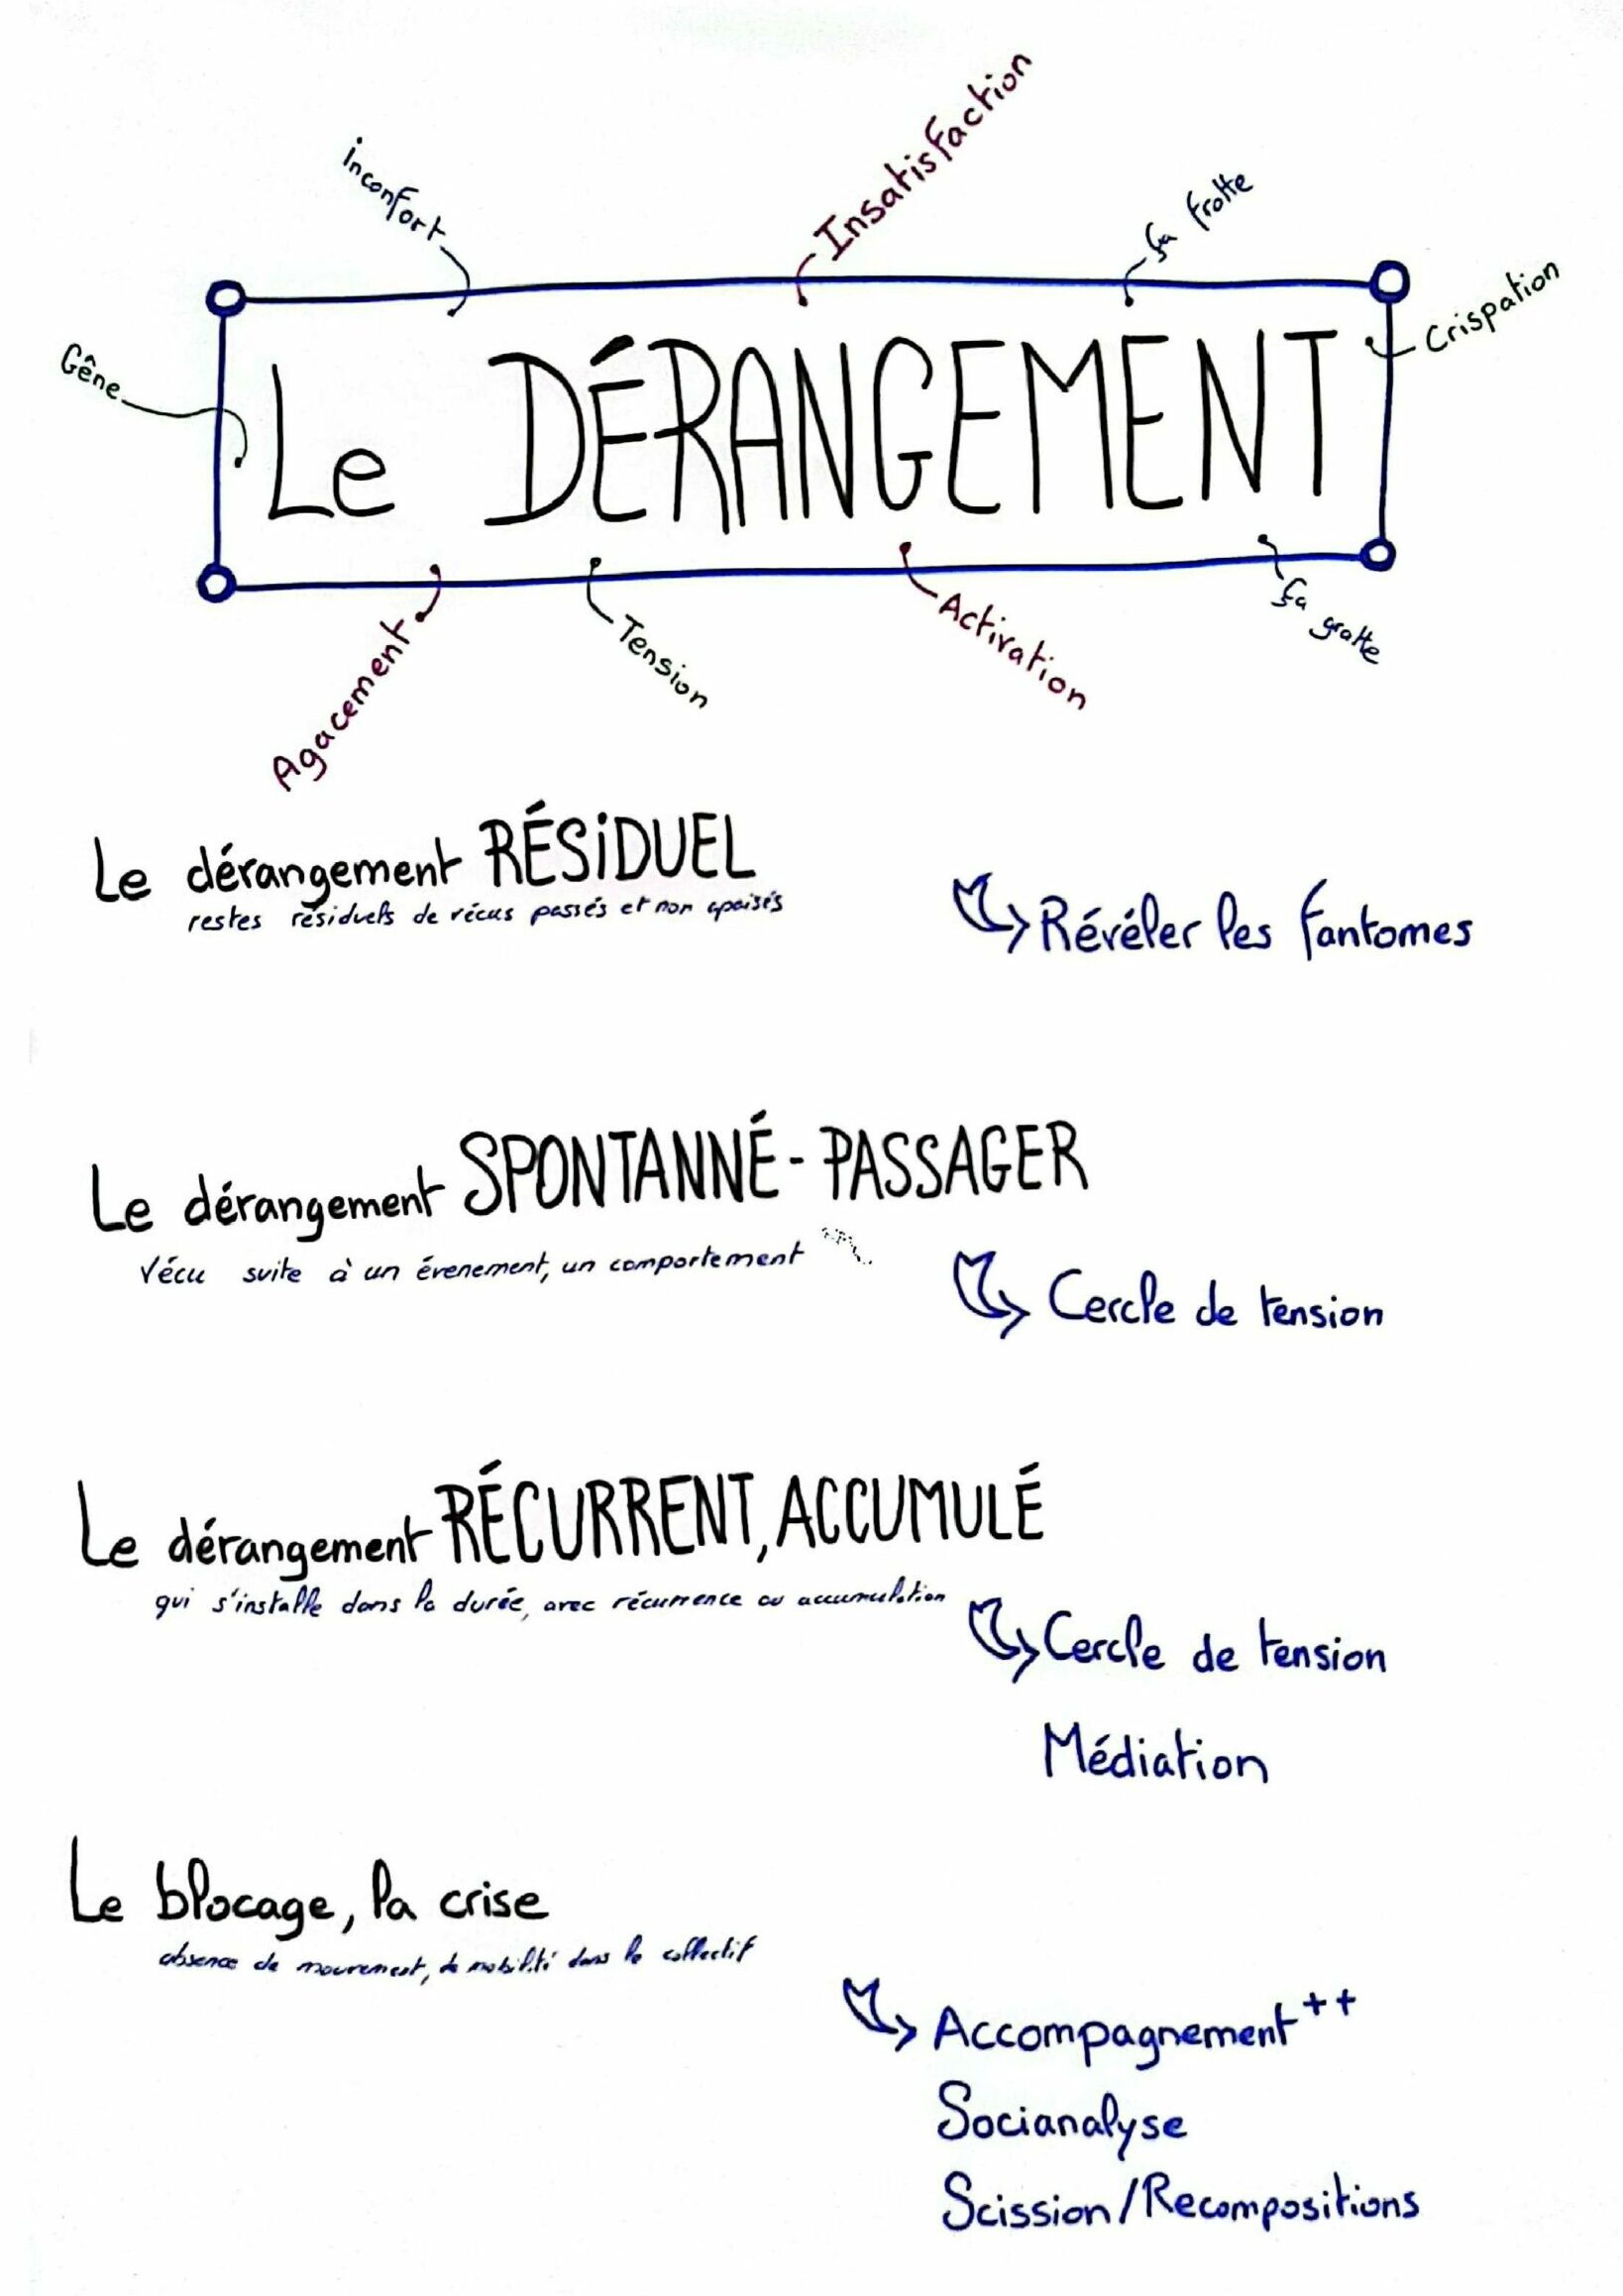 inconfort
Insatisfaction
ça frotte
Crispation
Gêne
Le DÉRANGEMENT
Agacement
Tension
Activation
ça gratte
Le dérangement RÉSiDUEL
restes résiduels de vécus passés et non apaisés
Révéler les fantomes
Le dérangement SPONTANNÉ - PASSAGER
Vécu suite à un évenement, un comportement
Cercle de tension
Le dérangement RÉCURRENT, ACCUMULÉ
qui s'installe dans la durée, avec récurrence ou accumulation
Cercle de tension
Médiation
Le blocage, la crise
absence de mouvement, de mobilité dans le collectif
Accompagnement ++
Socianalyse
Scission/Recompositions